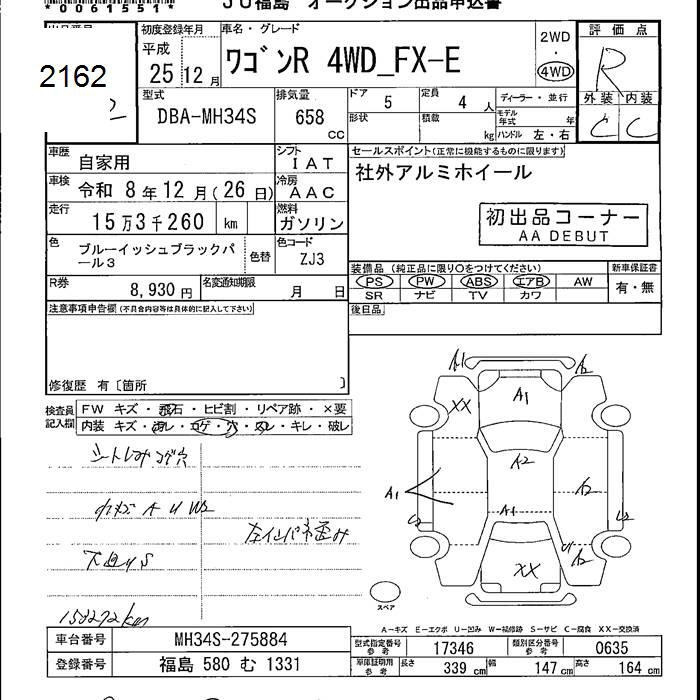 *0061551*
JU福島 オークション出品申込書
2162
初度登録年月
平成
25 12 月
車名・グレード
ワゴンR 4WD_FX-E
2WD
4WD
評価点
R
外装 内装
C C
型式
DBA-MH34S
排気量
658
CC
ドア 5
定員 4 人
ディーラー・並行
形状
積載
kg
モデル年式
年
ハンドル 左・右
車歴
自家用
シフト
IAT
車検
令和 8年12月(26日)
冷房
AAC
走行
15万3千260 km
燃料
ガソリン
色
ブルーイッシュブラックパール3
色替
色コード
ZJ3
R券
8,930 円
名変通知期限
月 日
セールスポイント(正常に機能するものに限ります)
社外アルミホイール
初出品コーナー
AA DEBUT
装備品(純正品に限り○をつけてください)
新車保証書
PS PW ABS エアB AW
有・無
SR ナビ TV カワ
後日品
注意事項申告欄(不具合内容等は具体的に記入して下さい)
修復歴 有〔箇所 〕
検査員記入欄
FW キズ・飛石・ヒビ割・リペア跡・×要
内装 キズ・汚レ・コゲ・穴・スレ・キレ・破レ
下廻りS
A1
A2
XX
A1
A2
A2
A1
A1
A2
XX
スペア
A-キズ E-エクボ U-凹み W-補修跡 S-サビ C-腐食 XX-交換済
車台番号
MH34S-275884
登録番号
福島 580 む 1331
型式指定番号
参考
17346
類別区分番号
参考
0635
車庫証明用
参考
長さ 339 cm
幅 147 cm
高さ 164 cm